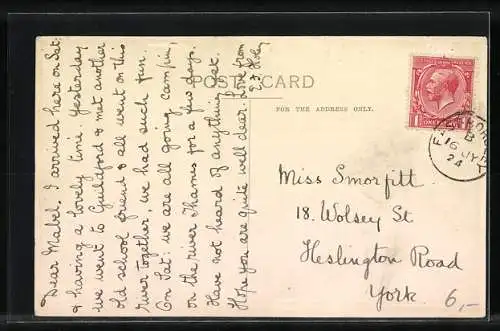 POST CARD
FOR THE ADDRESS ONLY.
Dear Mabel. I arrived here on Sat:
& having a lovely time. Yesterday
we went to Guildford & met another
old school friend & all went on the
river together, we had such fun.
On Sat: we are all going campin,
on the river Thames for a few days.
Have not heard of anything yet.
Hope you are quite well dear. Love from
E.J.
Miss Smorfitt
18. Wolsey St
Heslington Road
York.
6,-
B
16 JY
24